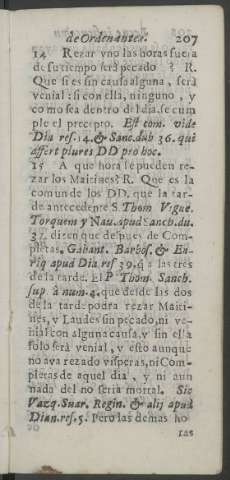 de Ordenantes. 207
14 Rezar vno las horas fuera
de su tiempo será pecado? R.
Que si es sin causa alguna, será
venial: si con ella, ninguno, y
como sea dentro del dia, se cum
ple el precepto. Est com. vide
Dia ref. 14. & Sanc. dub 36. qui
affert plures DD pro hoc.
15 A que hora se pueden re-
zar los Maitines? R. Que es la
comun de los DD, que la tar-
de antecedente S. Thom Vigue.
Torquem y Nau. apud Sanch. du.
37. dizen que despues de Com-
pletas, Gabant. Barbos. & En-
riq apud Dia. ref 39. q à las tres
de la tarde. El P Thom. Sanch.
sup à num. 4. que desde las dos
de la tarde podra rezar Maiti-
nes, y Laudes sin pecado, ni ve-
nial con alguna causa, y sin ella
solo será venial, y esto aunque
no aya rezado visperas, ni Com-
pletas de aquel dia, y ni aun
nada del no seria mortal. Sic
Vazq. Suar. Regin. & alij apud
Dian. res. 5. Pero las demas ho
ras